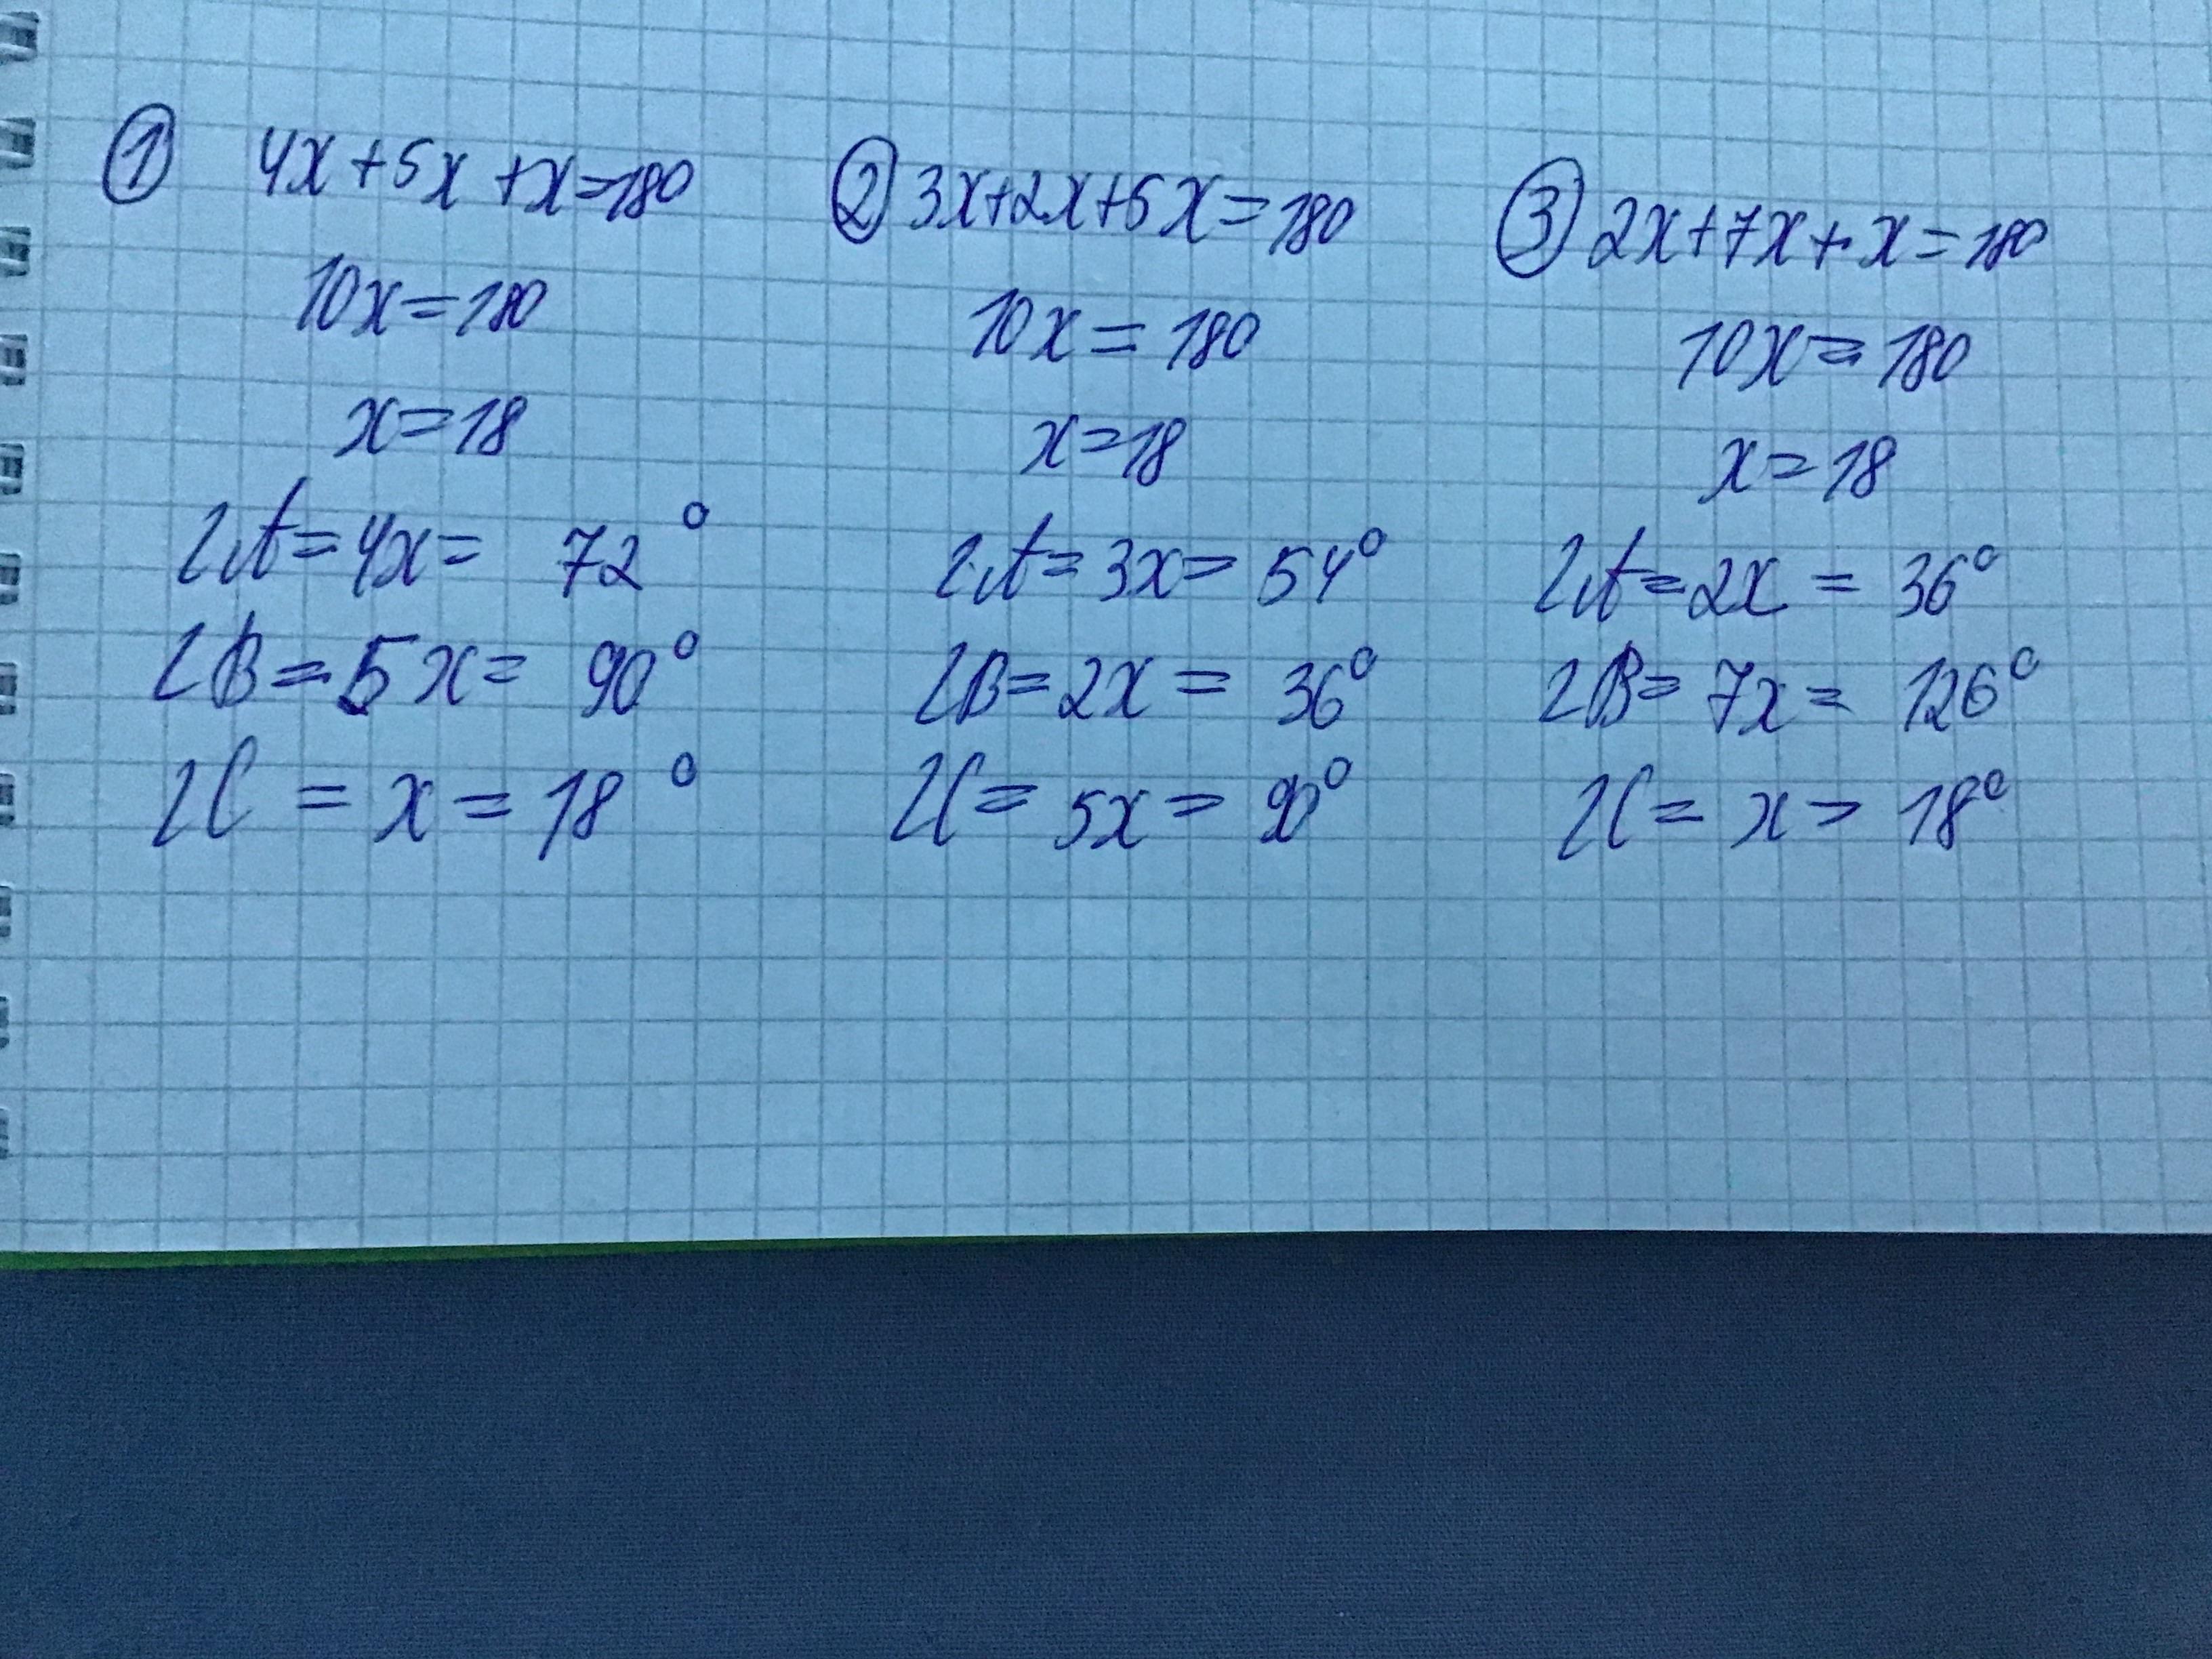 ① 4x+5x+x=180
10x=180
x=18
∠A=4x= 72°
∠B=5x= 90°
∠C = x = 18°
② 3x+2x+5x=180
10x = 180
x=18
∠A=3x= 54°
∠B=2x = 36°
∠C= 5x= 90°
③ 2x+7x+x=180
10x=180
x=18
∠A=2x = 36°
∠B= 7x= 126°
∠C= x= 18°